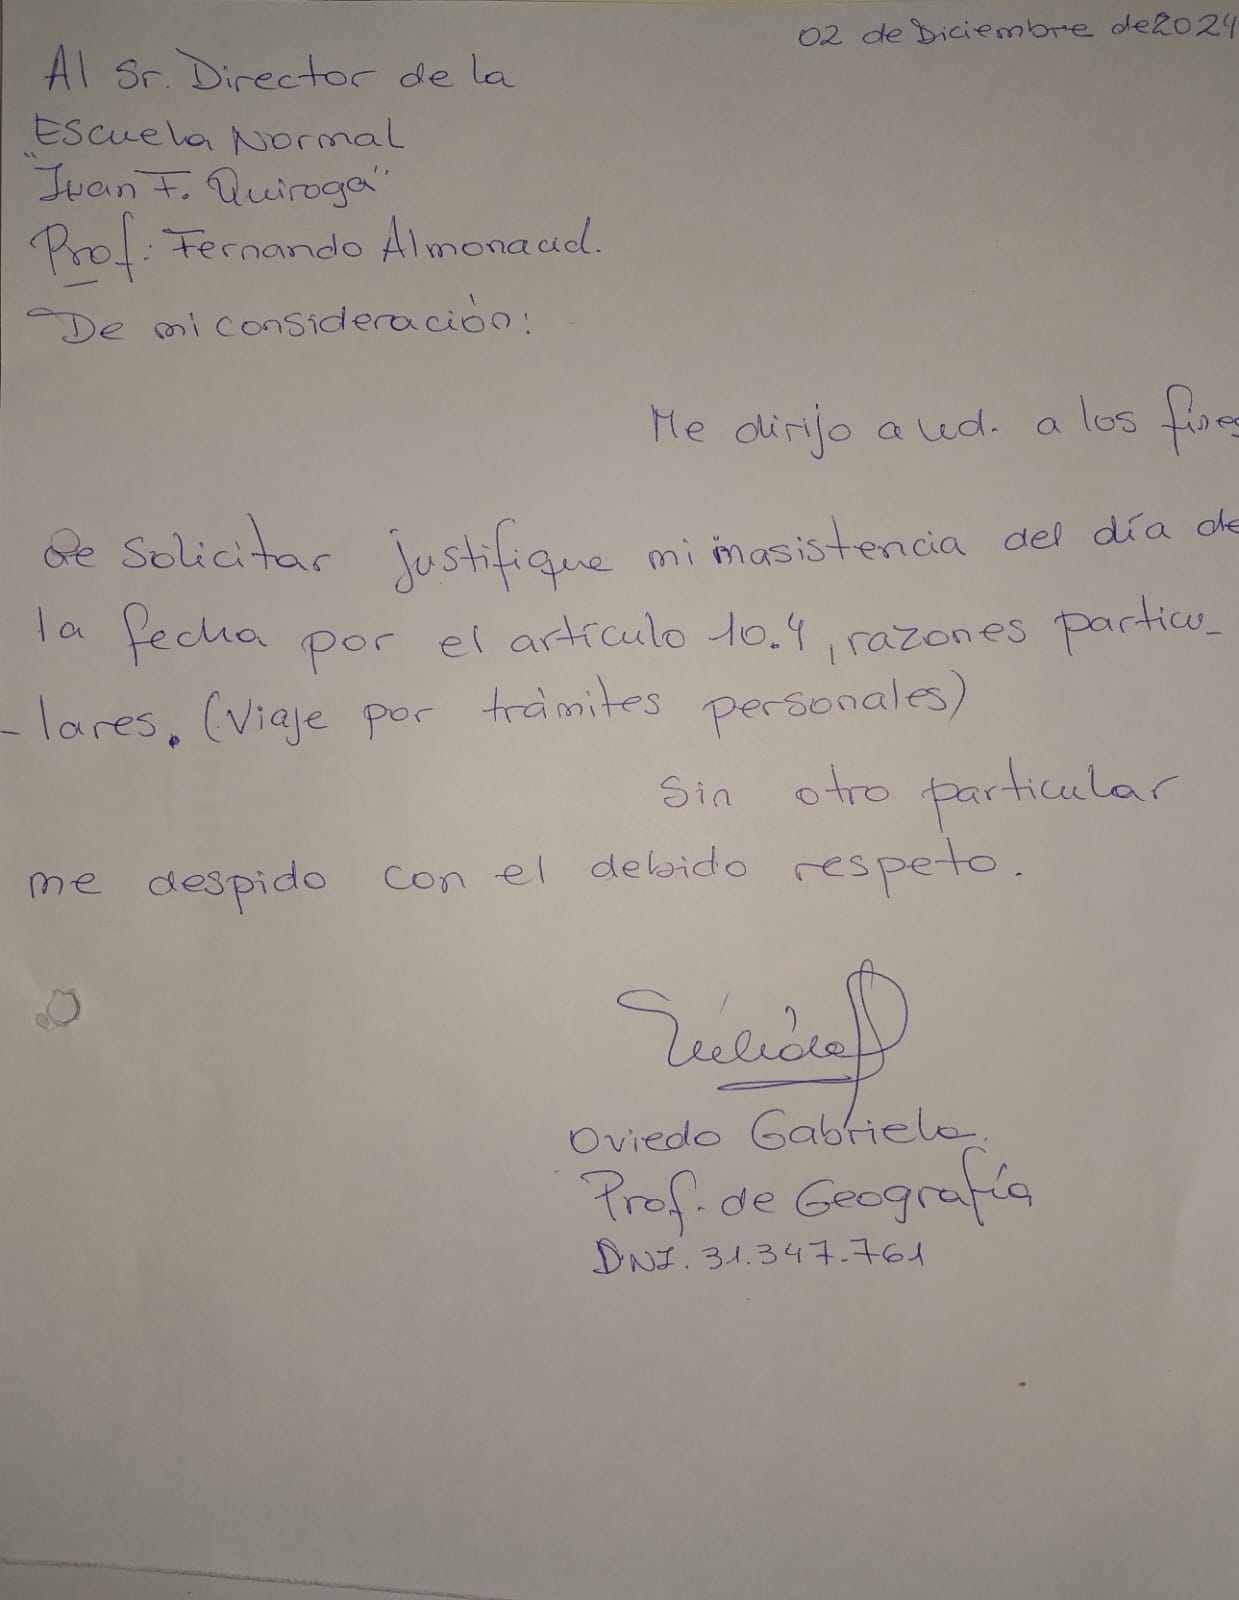 02 de Diciembre de 2024
Al Sr. Director de la
Escuela Normal
"Juan F. Quiroga"
Prof: Fernando Almonacid.
De mi consideración:
Me dirijo a Ud. a los fines
de solicitar justifique mi inasistencia del día de
la fecha por el artículo 10.4, razones particu-
-lares. (Viaje por trámites personales)
Sin otro particular
me despido con el debido respeto.
Oviedo Gabriela.
Prof. de Geografía
DNI. 31.347.761